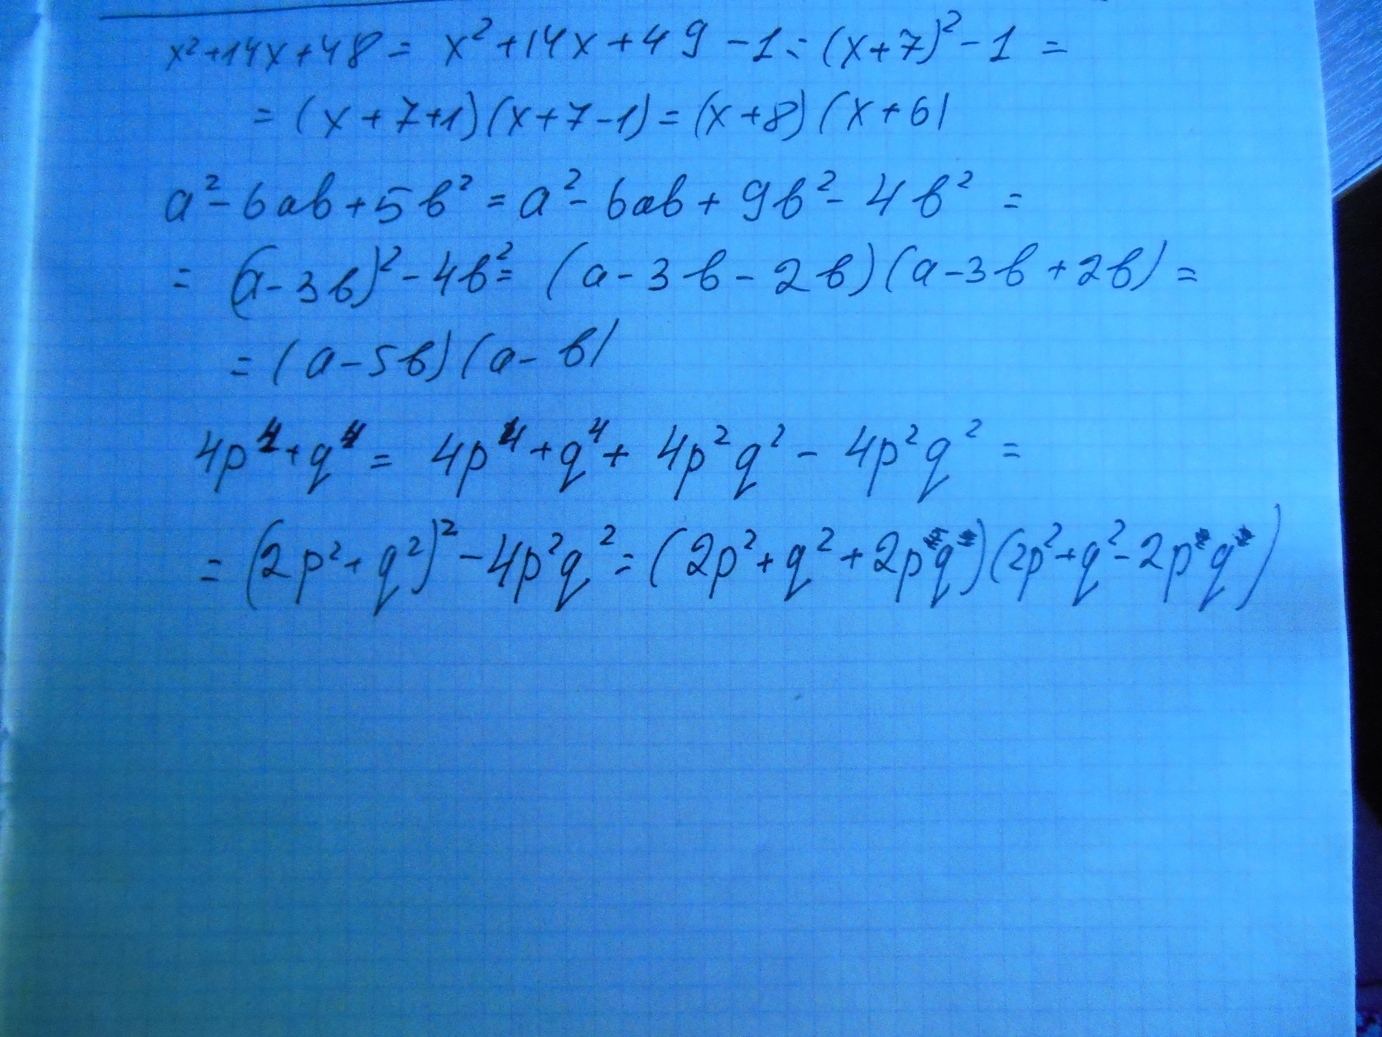 x²+14x+48 = x²+14x+49-1 = (x+7)²-1 =
= (x+7+1)(x+7-1) = (x+8)(x+6)
a²-6ab+5b² = a²-6ab+9b²-4b² =
= (a-3b)²-4b² = (a-3b-2b)(a-3b+2b) =
= (a-5b)(a-b)
4p⁴+q⁴ = 4p⁴+q⁴+4p²q²-4p²q² =
= (2p²+q²)²-4p²q² = (2p²+q²+2pq)(2p²+q²-2pq)